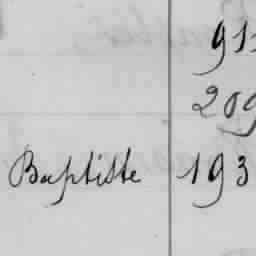 911
209
Baptiste 193